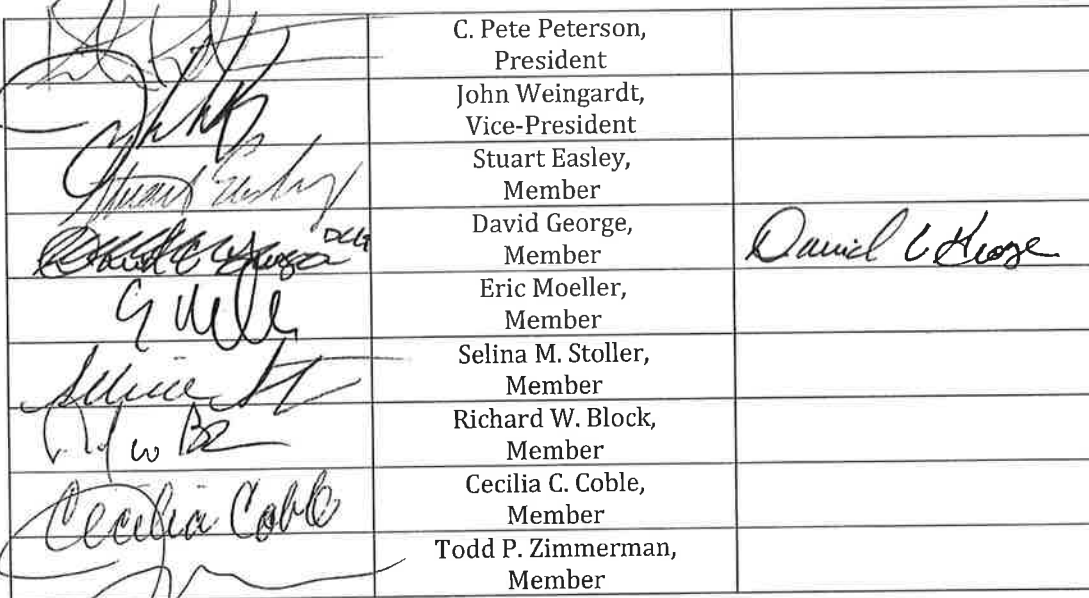 C. Pete Peterson,
President
John Weingardt,
Vice-President
Stuart Easley
Stuart Easley,
Member
DCG
David George,
Member
David C George
Eric Moeller,
Member
Selina M. Stoller,
Member
Richard W. Block,
Member
Cecilia Coble
Cecilia C. Coble,
Member
Todd P. Zimmerman,
Member